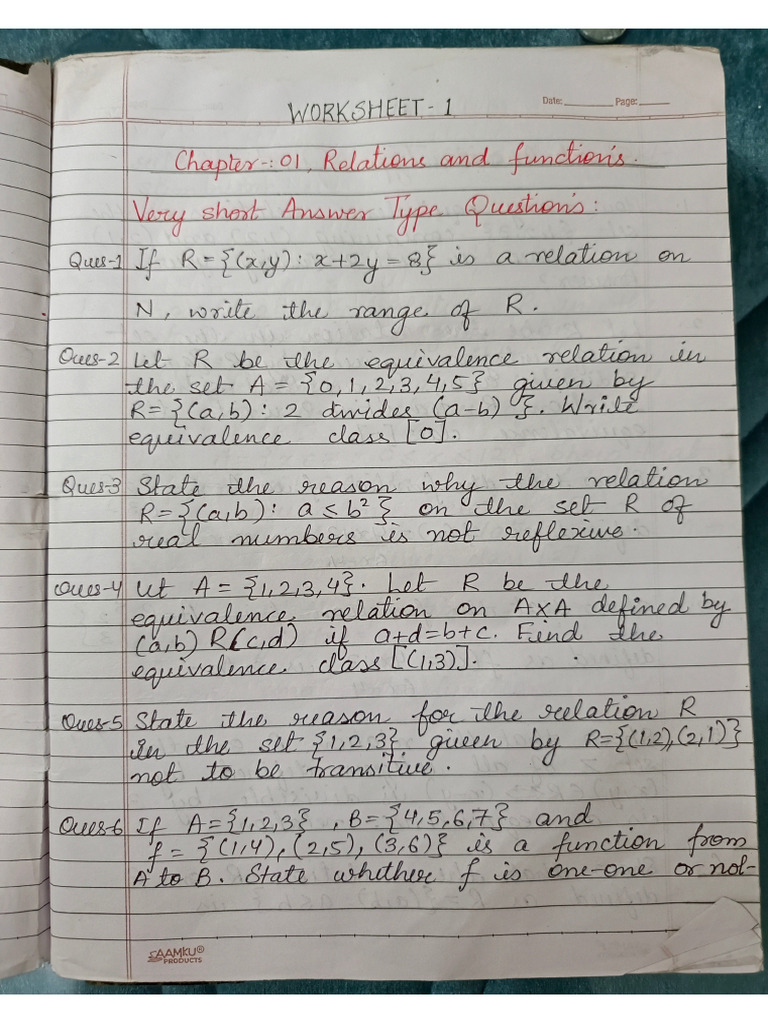 WORKSHEET - 1
Date: Page:
Chapter-: 01, Relations and functions.
Very short Answer Type Questions:
Ques-1 If R = {(x,y) : x+2y = 8} is a relation on
N, write the range of R.
Ques-2 Let R be the equivalence relation in
the set A = {0,1,2,3,4,5} given by
R = {(a,b) : 2 divides (a-b)}. Write
equivalence class [0].
Ques-3 State the reason why the relation
R = {(a,b) : a ≤ b²} on the set R of
real numbers is not reflexive.
Ques-4 Ut A = {1,2,3,4}. Let R be the
equivalence relation on A×A defined by
(a,b) R (c,d) if a+d=b+c. Find the
equivalence class [(1,3)].
Ques-5 State the reason for the relation R
in the set {1,2,3} given by R={(1,2),(2,1)}
not to be transitive.
Ques-6 If A={1,2,3}, B={4,5,6,7} and
f = {(1,4), (2,5), (3,6)} is a function from
A to B. State whether f is one-one or not-
SAAMKU®
PRODUCTS